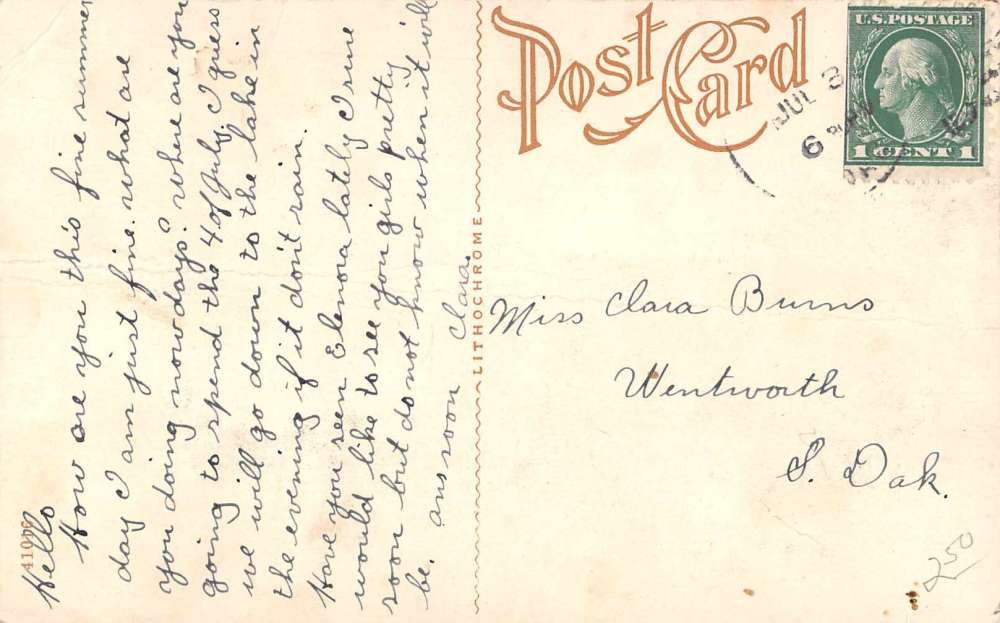 Hello
How are you this fine summer
day I am just fine. what are
you doing nowdays? where are you
going to spend the 4 of July. I guess
we will go down to the lake in
the evening if it don't rain.
Have you seen Elenora lately I sure
would like to see you girls pretty
soon but do not know when it will
be.
ans soon Clara.
LITHOCHROME
Post Card
U.S. POSTAGE
1 CENT 1
JUL 3
6 PM
Miss Clara Burns
Wentworth
S. Dak.
250